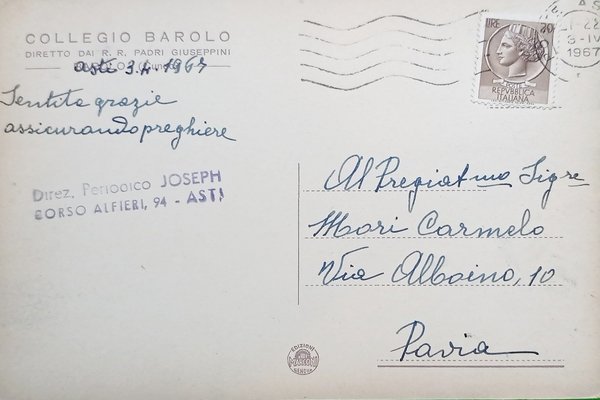 COLLEGIO BAROLO
DIRETTO DAI R. R. PADRI GIUSEPPINI
BAROLO (Cuneo)
Asti 3.4.1967
Sentite grazie
assicurando preghiere
Direz. Periodico JOSEPH
CORSO ALFIERI, 94 - ASTI
LIRE 20
REPVBBLICA
ITALIANA
AS
21-22
3-IV
1967
Al Pregiatmo Sigre
Mori Carmelo
Via Alboino, 10
Pavia
EDIZIONI
GENOVA